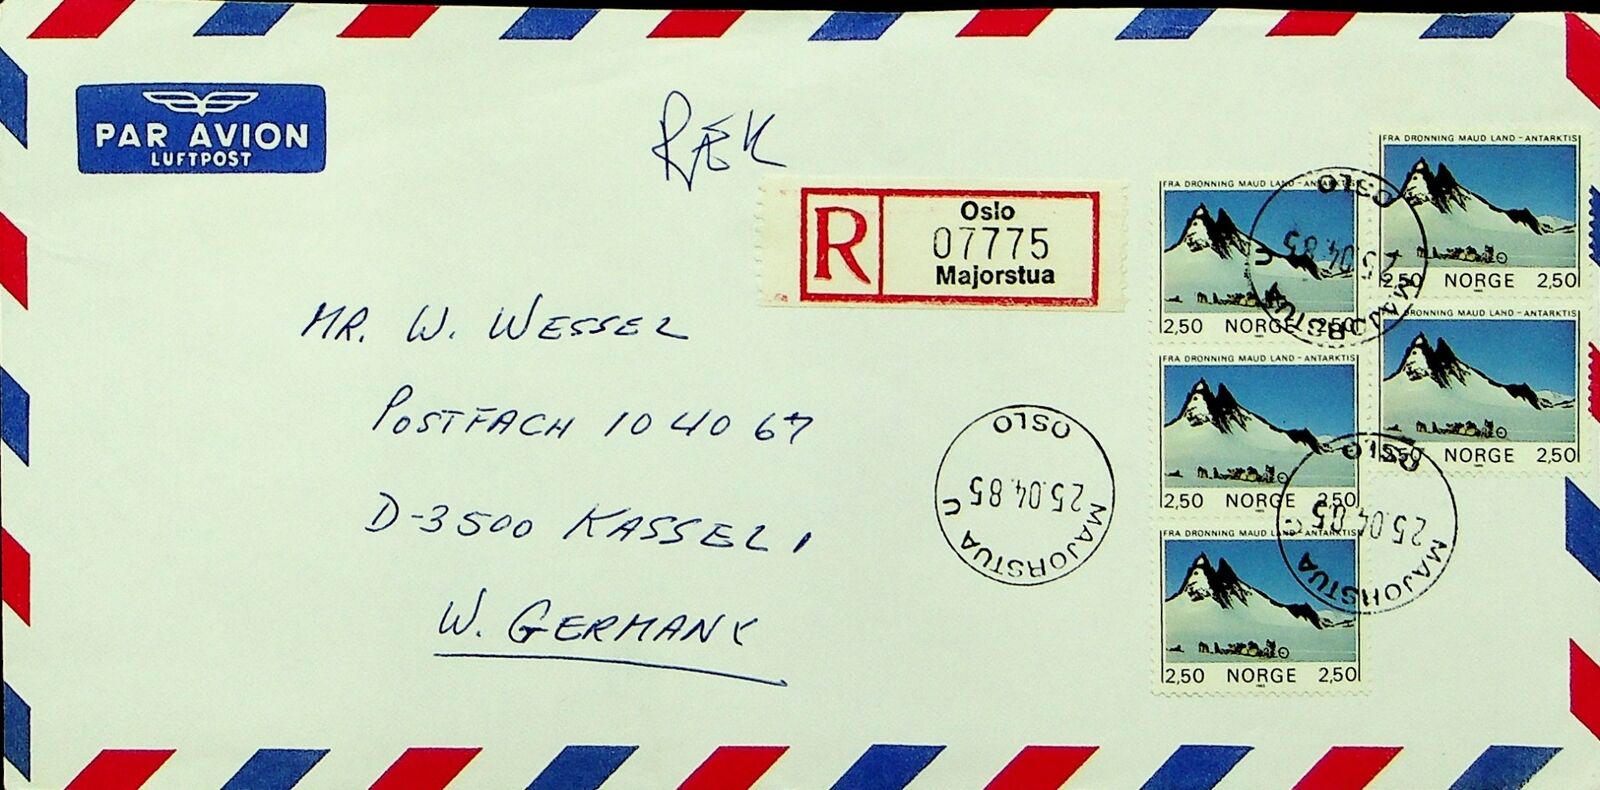 PAR AVION
LUFTPOST
RÆK
R
Oslo
07775
Majorstua
MR. W. WESSEL
POSTFACH 10 40 67
D-3500 KASSEL 1
W. GERMANY
OSLO
25.04.85
MAJORSTUA C
FRA DRONNING MAUD LAND - ANTARKTIS
2,50 NORGE 2,50
FRA DRONNING MAUD LAND - ANTARKTIS
2,50 NORGE 2,50
FRA DRONNING MAUD LAND - ANTARKTIS
2,50 NORGE 2,50
FRA DRONNING MAUD LAND - ANTARKTIS
2,50 NORGE 2,50
FRA DRONNING MAUD LAND - ANTARKTIS
2,50 NORGE 2,50
OSLO
25.04.85
MAJORSTUA C
OSLO
25.04.85
MAJORSTUA C